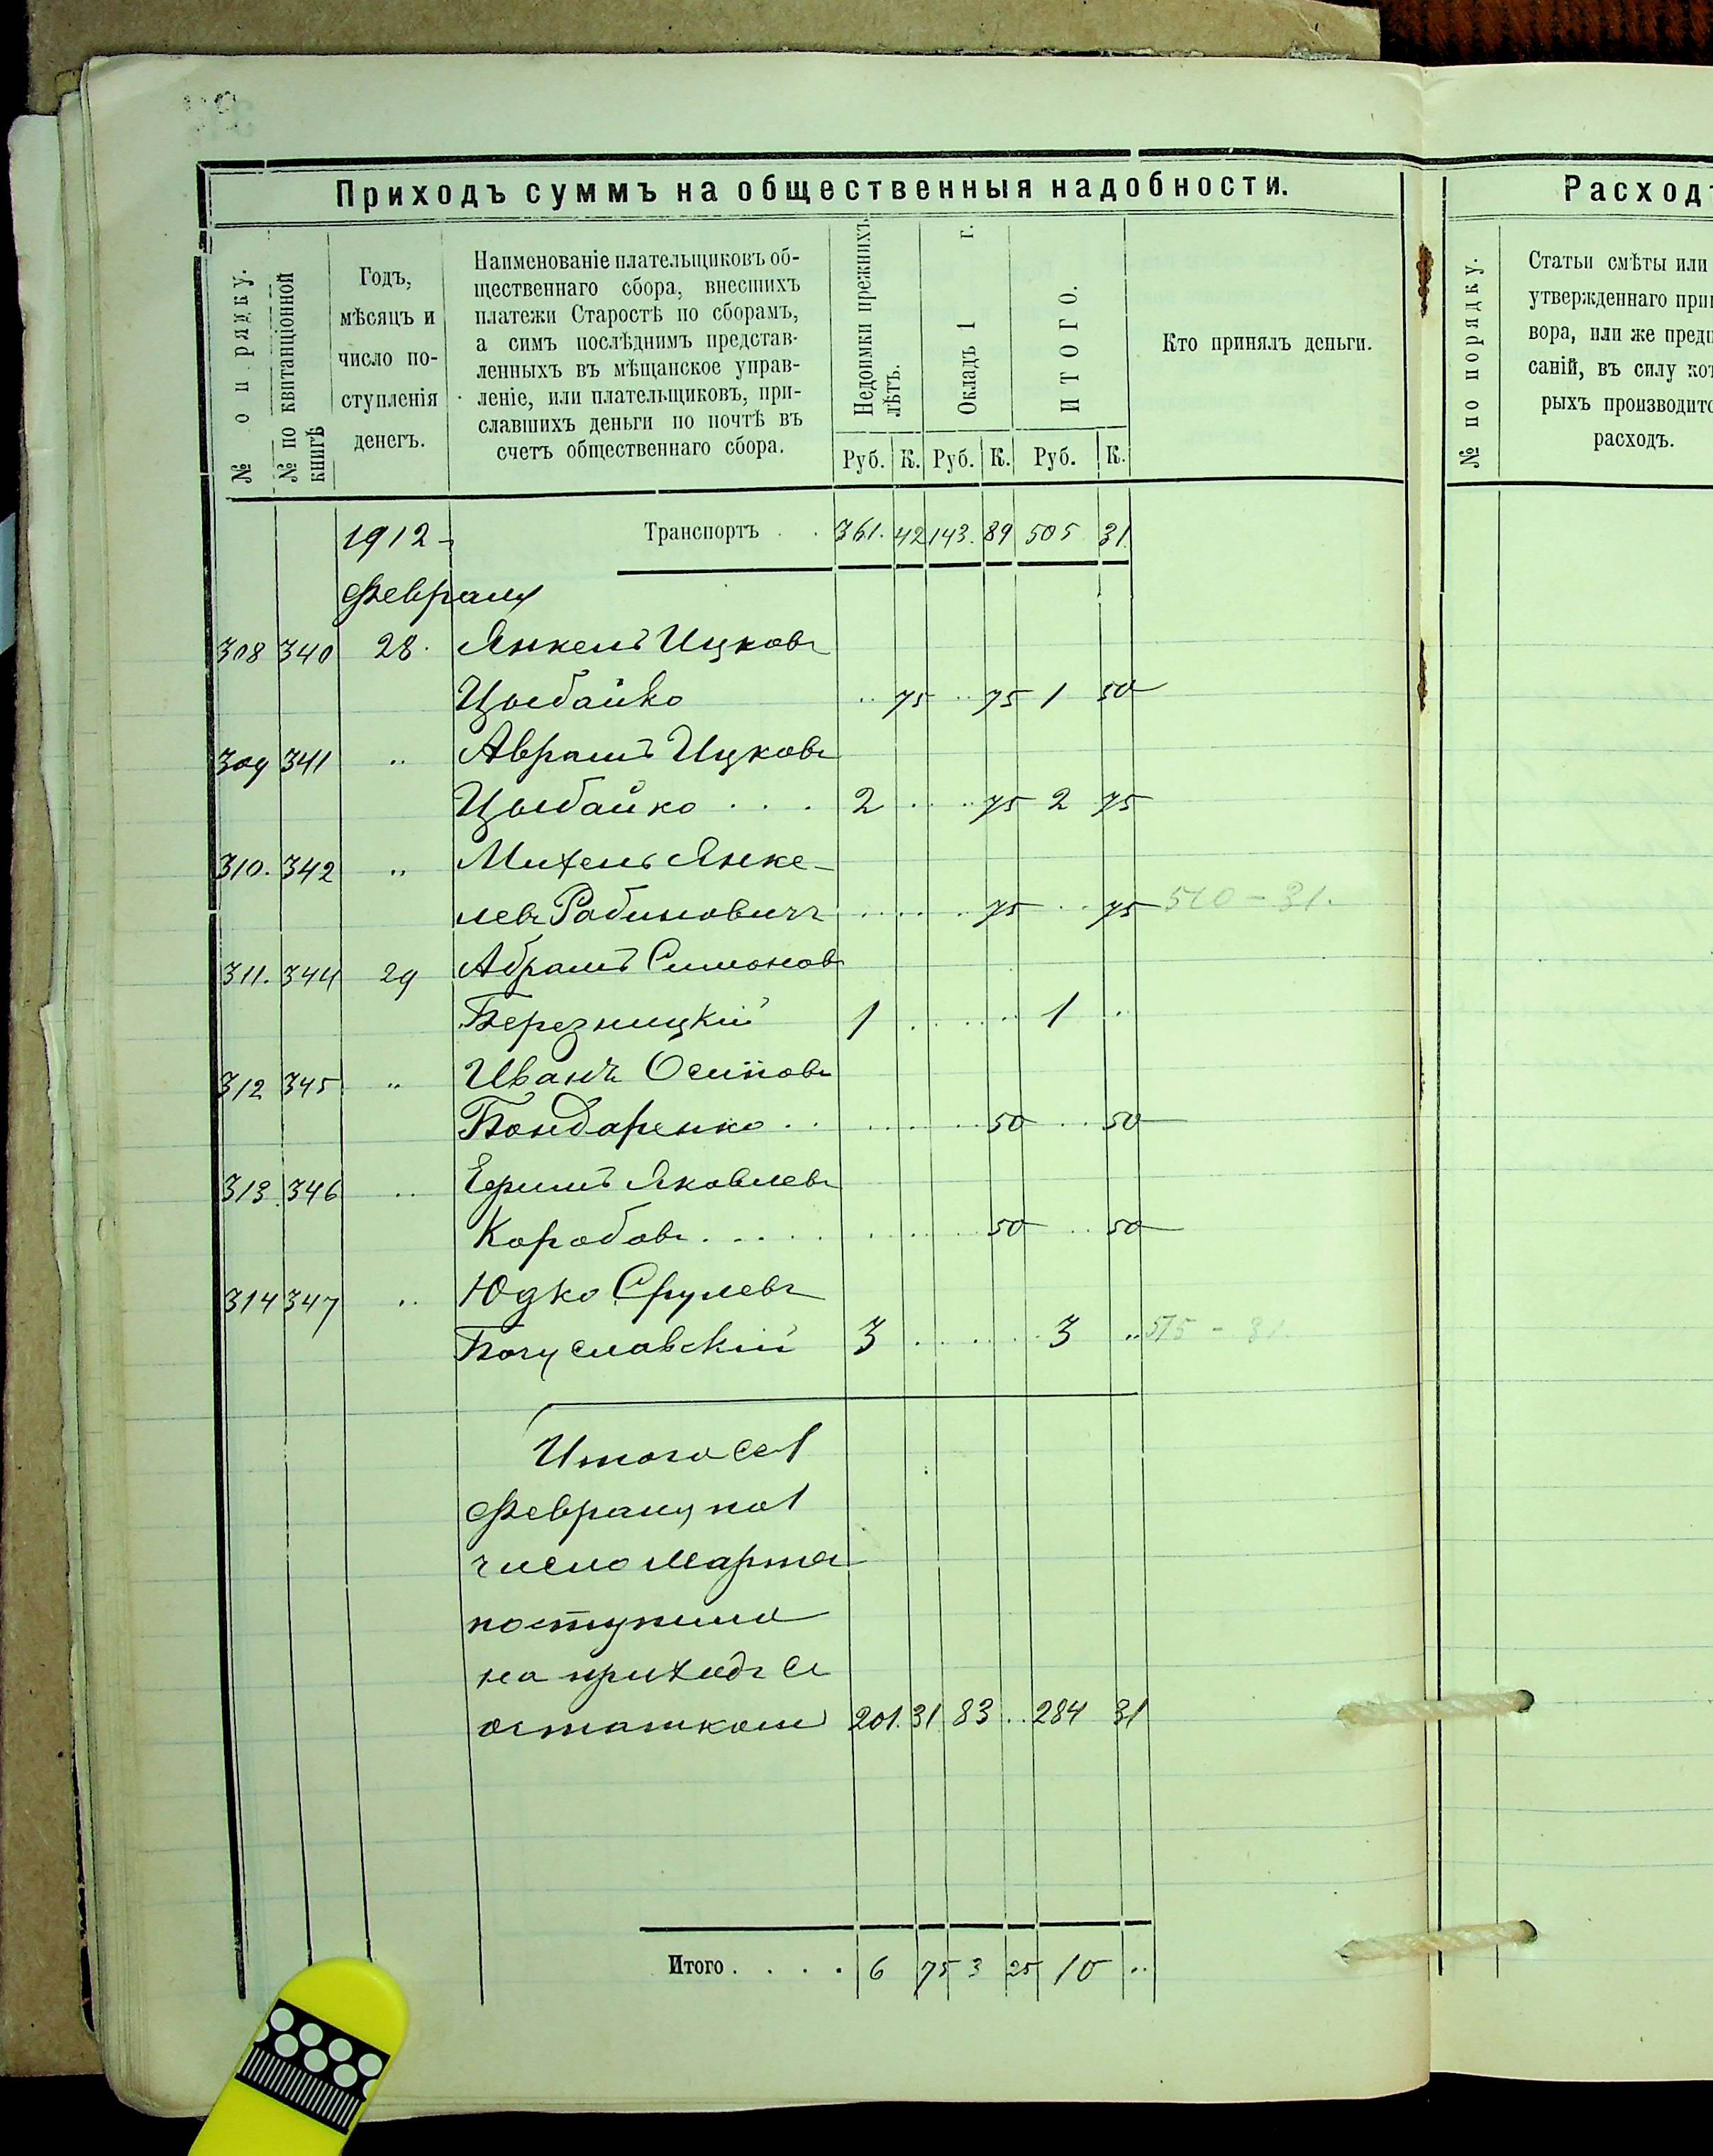 Приходъ суммъ на общественныя надобности.
№ по рядку.
№ по квитанціонной книгѣ
Годъ,
мѣсяцъ и
число по-
ступленія
денегъ.
Наименованіе плательщиковъ об-
щественнаго сбора, внесшихъ
платежи Старостѣ по сборамъ,
а симъ послѣднимъ представ-
ленныхъ въ мѣщанское управ-
леніе, или плательщиковъ, при-
славшихъ деньги по почтѣ въ
счетъ общественнаго сбора.
Недоимки прежнихъ лѣтъ.
Окладъ 1 г.
ИТОГО.
Кто принялъ деньги.
Руб. К. Руб. К. Руб. К.
1912 Транспортъ . . 361. 42 143. 89 505 31
Февраля
308 340 28. Янкель Ицковъ
Цыбайко .. 75 .. 75 1 50
309 341 .. Авраамъ Ицковъ
Цыбайко . . . 2 .. .. 75 2 75
310. 342 .. Михель Янке-
левъ Рабиновичъ .. .. .. 75 .. 75 510 - 31.
311. 344 29 Абрамъ Симоновъ
Березницкій 1 .. .. .. 1 ..
312 345 .. Иванъ Осиповъ
Бондаренко .. .. .. .. 50 .. 50
313. 346 .. Ефимъ Яковлевъ
Коробовъ . . . . .. .. .. 50 .. 50
314 347 .. Юдко Срулевъ
Богуславскій 3 .. .. .. 3 .. 515 - 31.
Итого съ 1
Февраля по 1
число Марта
поступило
на приходъ съ
остаткомъ 201. 31 83 .. 284 31
Итого . . . . 6 75 3 25 10 ..
Расходъ
№ по порядку.
Статьи смѣты или
утвержденнаго при
вора, или же пред
саній, въ силу кот
рыхъ производитс
расходъ.